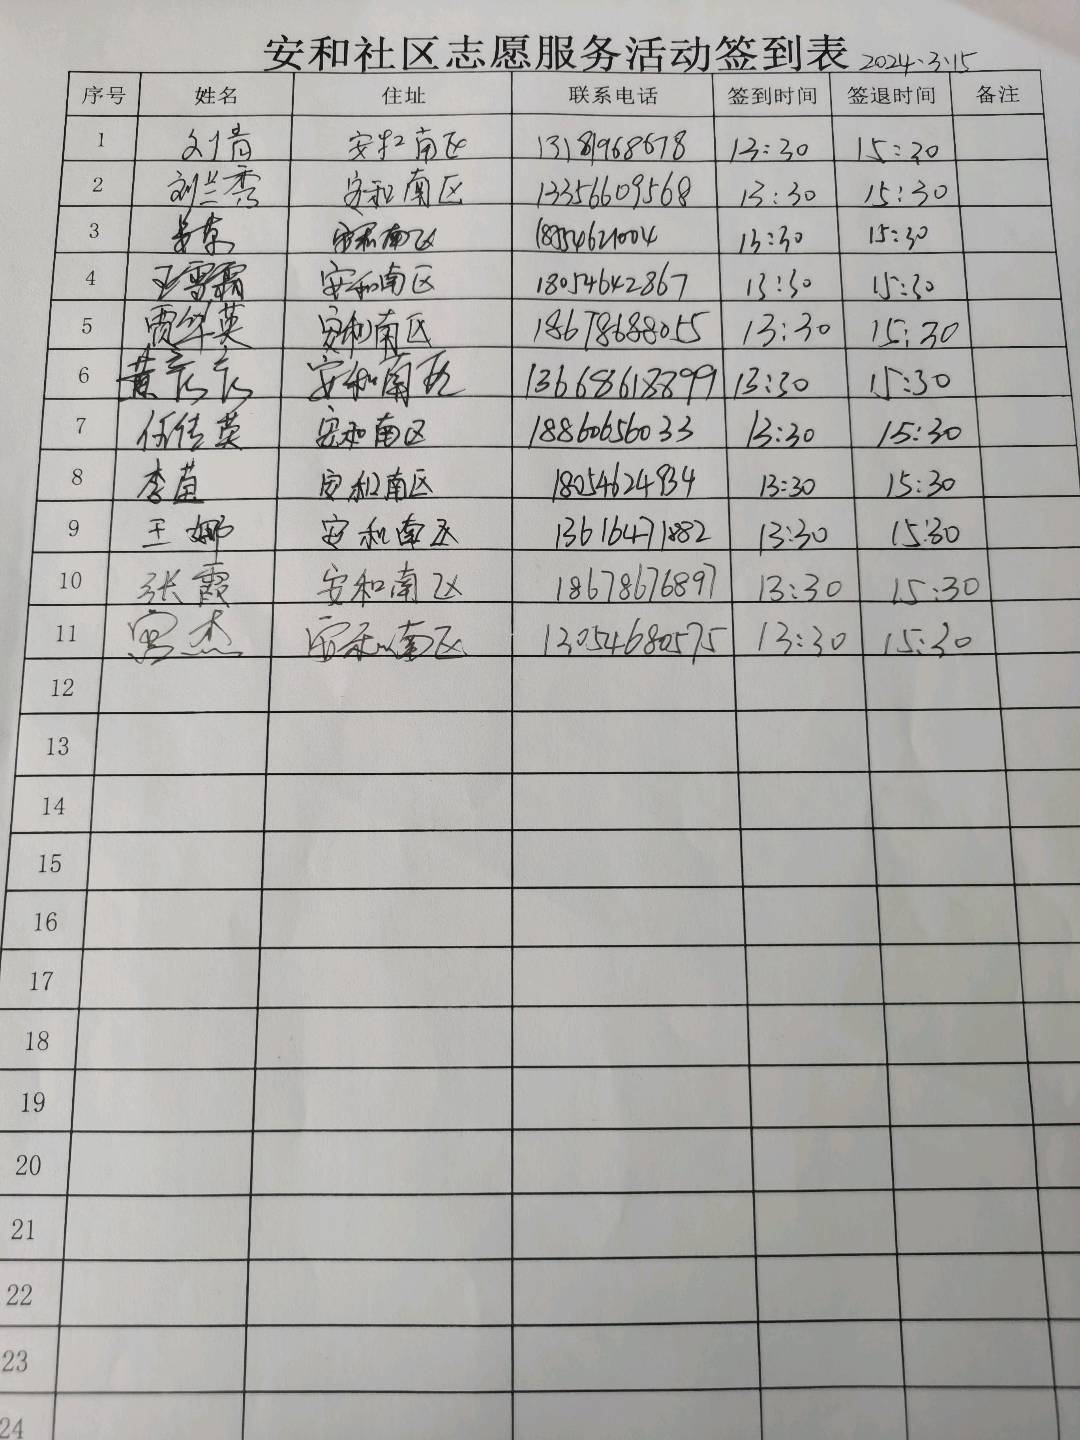 安和社区志愿服务活动签到表 2024.3.15
序号 姓名 住址 联系电话 签到时间 签退时间 备注
1 刘倩 安和南区 13181968678 13:30 15:30
2 刘兰秀 安和南区 13356609568 13:30 15:30
3 安和南区 18554621004 13:30 15:30
4 王雪霜 安和南区 18054642867 13:30 15:30
5 贾华英 安和南区 18678688055 13:30 15:30
6 黄 安和南区 13668618899 13:30 15:30
7 任传英 安和南区 18860656033 13:30 15:30
8 李苗 安和南区 18054624934 13:30 15:30
9 王娜 安和南区 13616471882 13:30 15:30
10 张霞 安和南区 18678676897 13:30 15:30
11 宫杰 安和南区 13054680575 13:30 15:30
12
13
14
15
16
17
18
19
20
21
22
23
24